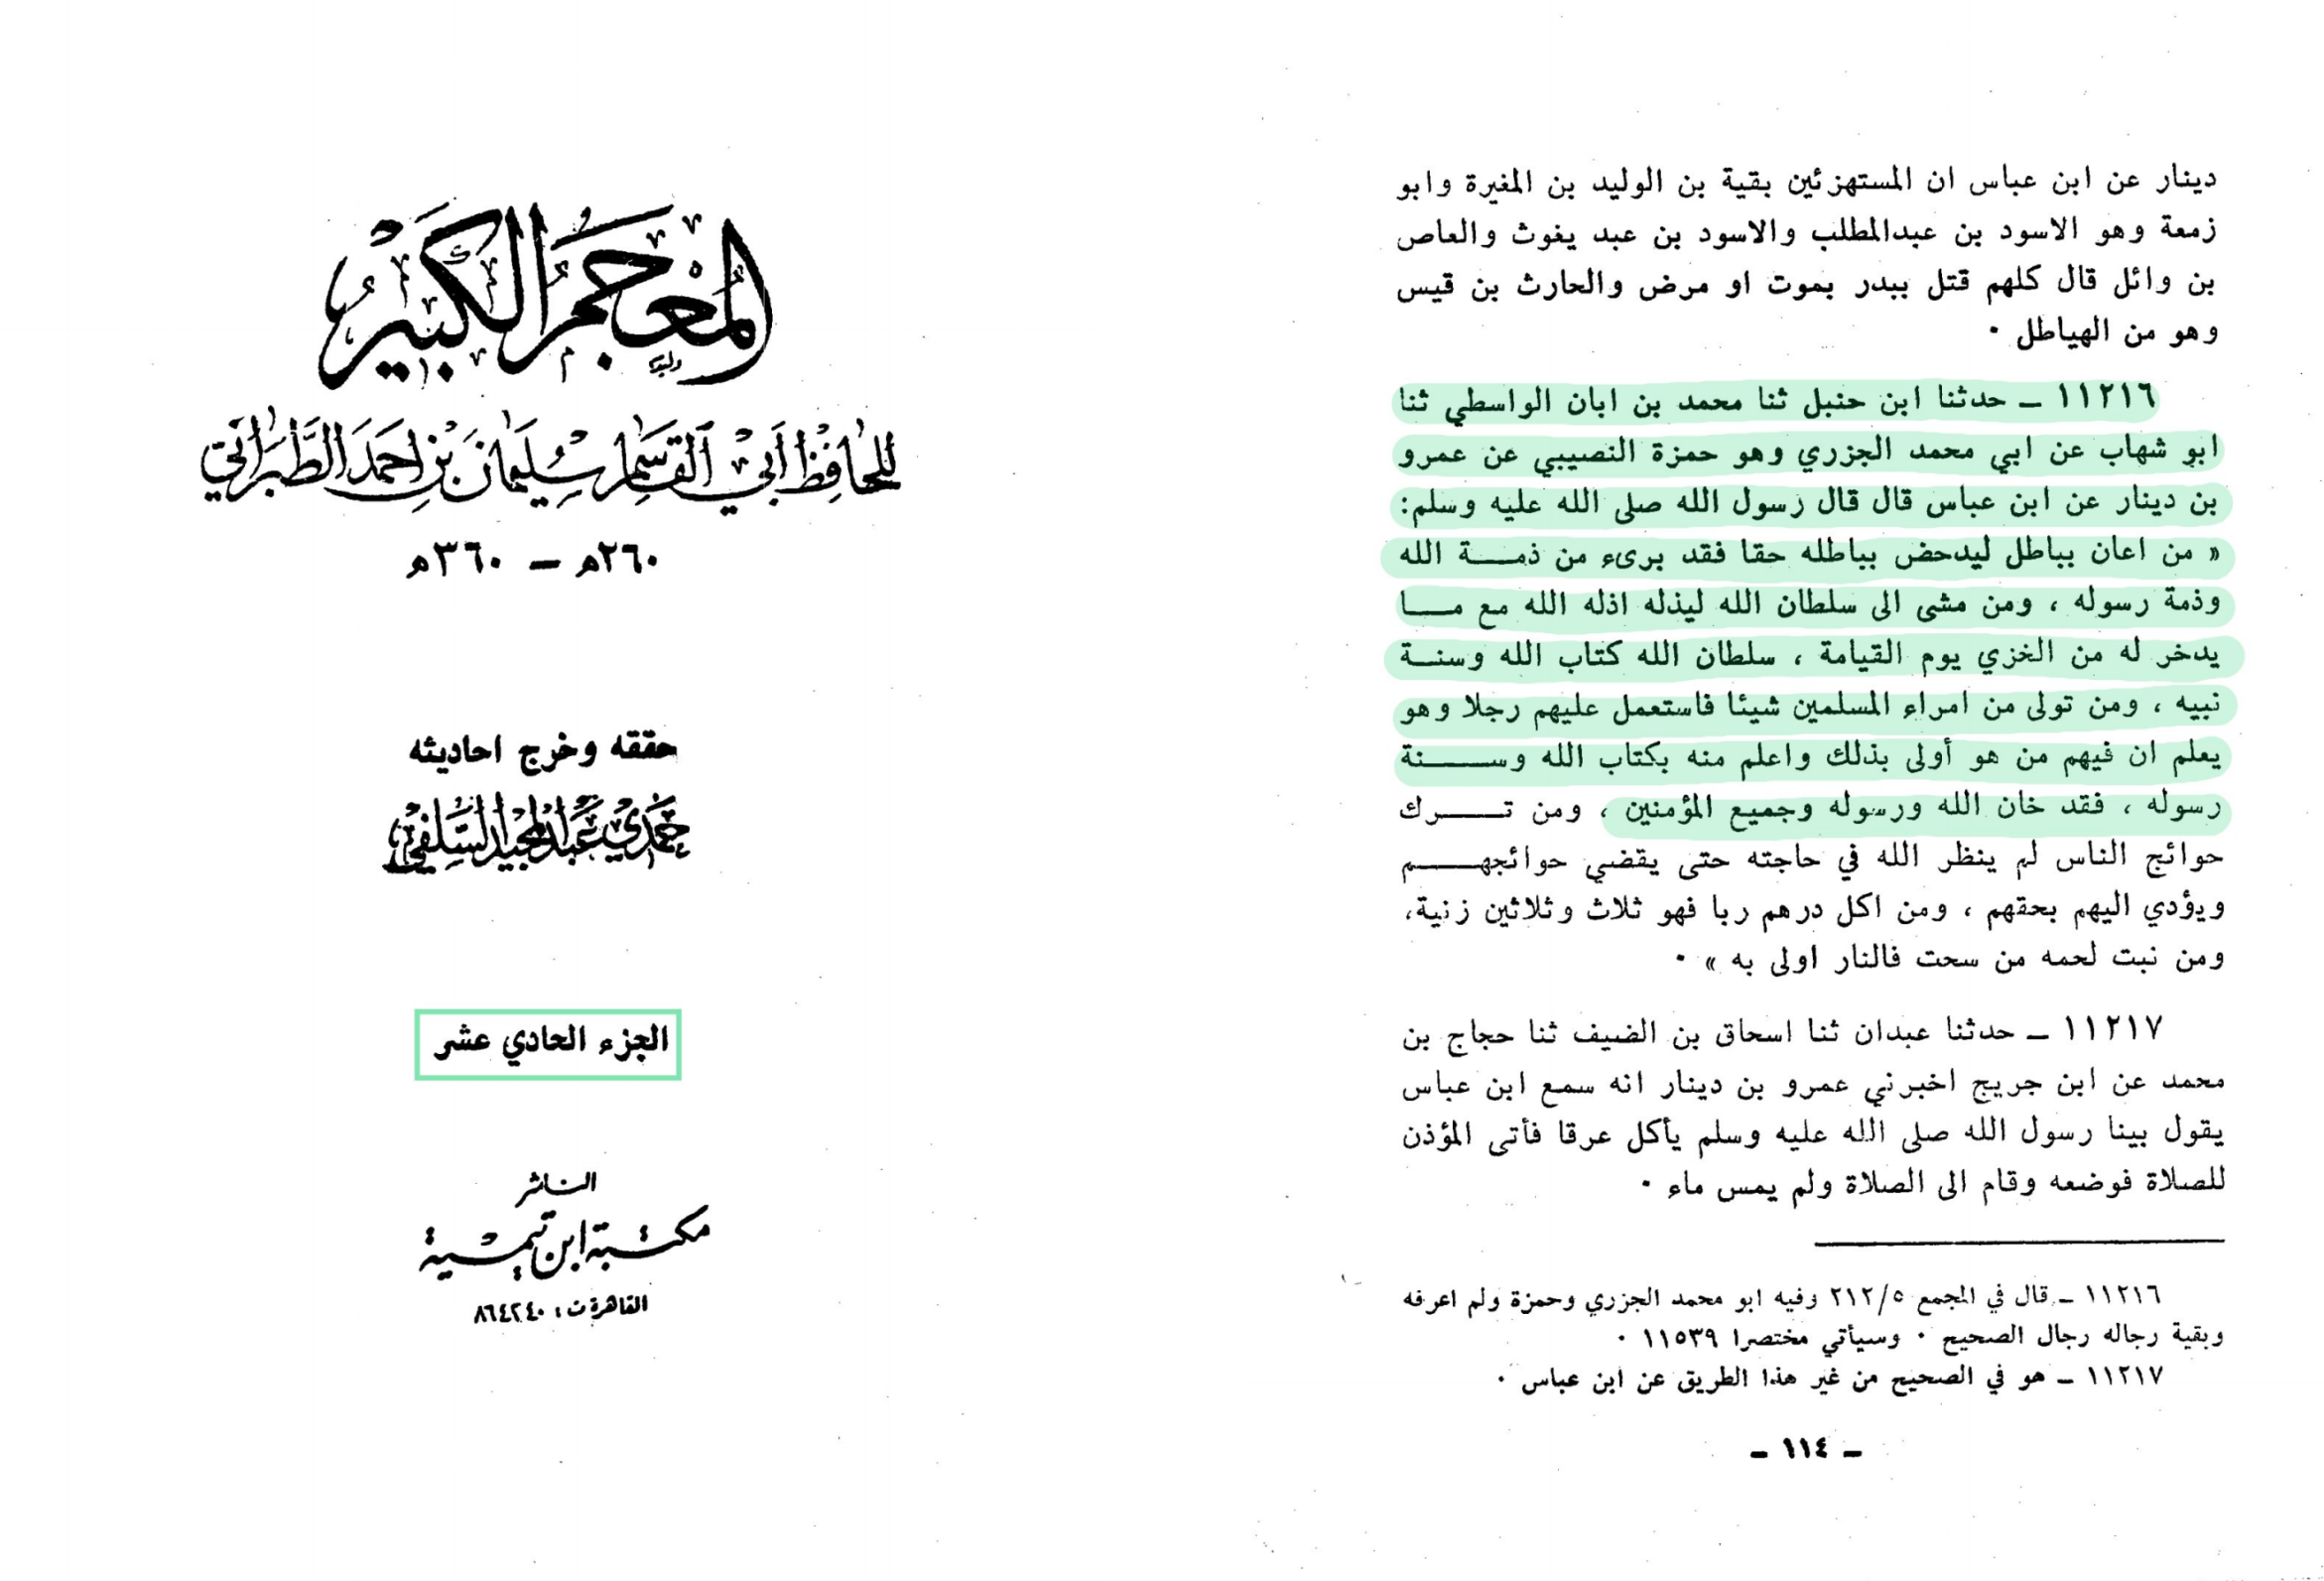 المعجم الكبير
للحافظ أبي القاسم سليمان بن أحمد الطبراني
٢٦٠هـ – ٣٦٠هـ
حققه وخرج احاديثه
حمدي عبد المجيد السلفي
الجزء الحادي عشر
الناشر
مكتبة ابن تيمية
القاهرة ت: ٨٦٤٢٤٠
دينار عن ابن عباس ان المستهزئين بقية بن الوليد بن المغيرة وابو
زمعة وهو الاسود بن عبدالمطلب والاسود بن عبد يغوث والعاص
بن وائل قال كلهم قتل ببدر بموت او مرض والحارث بن قيس
وهو من الهياطل .
١١٢١٦ – حدثنا ابن حنبل ثنا محمد بن ابان الواسطي ثنا
ابو شهاب عن ابي محمد الجزري وهو حمزة النصيبي عن عمرو
بن دينار عن ابن عباس قال قال رسول الله صلى الله عليه وسلم:
« من اعان بباطل ليدحض بباطله حقا فقد برىء من ذمة الله
وذمة رسوله ، ومن مشى الى سلطان الله ليذله اذله الله مع ما
يدخر له من الخزي يوم القيامة ، سلطان الله كتاب الله وسنة
نبيه ، ومن تولى من امراء المسلمين شيئا فاستعمل عليهم رجلا وهو
يعلم ان فيهم من هو أولى بذلك واعلم منه بكتاب الله وسنة
رسوله ، فقد خان الله ورسوله وجميع المؤمنين ، ومن ترك
حوائج الناس لم ينظر الله في حاجته حتى يقضي حوائجهم
ويؤدي اليهم بحقهم ، ومن اكل درهم ربا فهو ثلاث وثلاثين زنية،
ومن نبت لحمه من سحت فالنار اولى به » .
١١٢١٧ – حدثنا عبدان ثنا اسحاق بن الضيف ثنا حجاج بن
محمد عن ابن جريج اخبرني عمرو بن دينار انه سمع ابن عباس
يقول بينا رسول الله صلى الله عليه وسلم يأكل عرقا فأتى المؤذن
للصلاة فوضعه وقام الى الصلاة ولم يمس ماء .
١١٢١٦ – قال في المجمع ٢١٢/٥ وفيه ابو محمد الجزري وحمزة ولم اعرفه
وبقية رجاله رجال الصحيح . وسيأتي مختصرا ١١٥٣٩ .
١١٢١٧ – هو في الصحيح من غير هذا الطريق عن ابن عباس .
– ١١٤ –